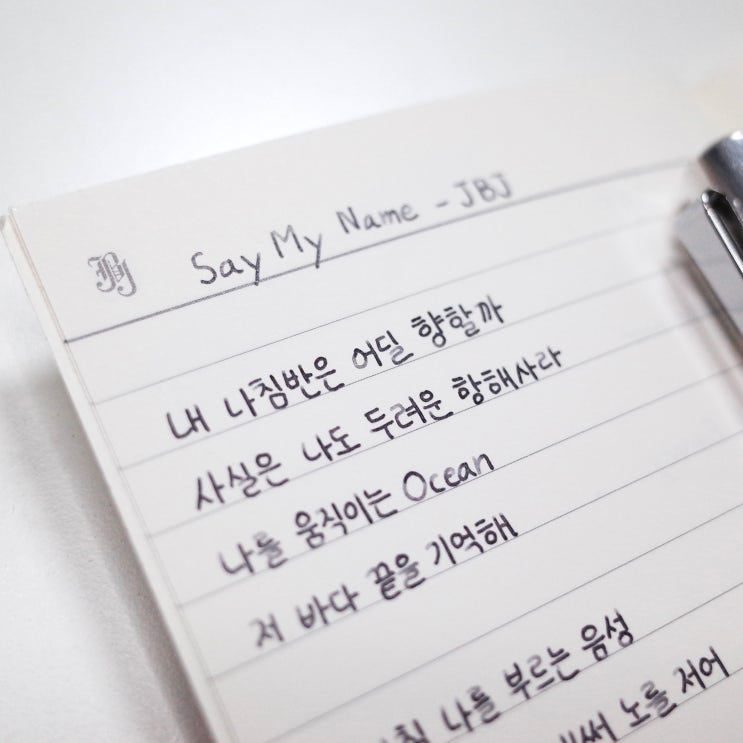 Say My Name - JBJ
내 나침반은 어딜 향할까
사실은 나도 두려운 항해사라
나를 움직이는 Ocean
저 바다 끝을 기억해
나를 부르는 음성
노를 저어